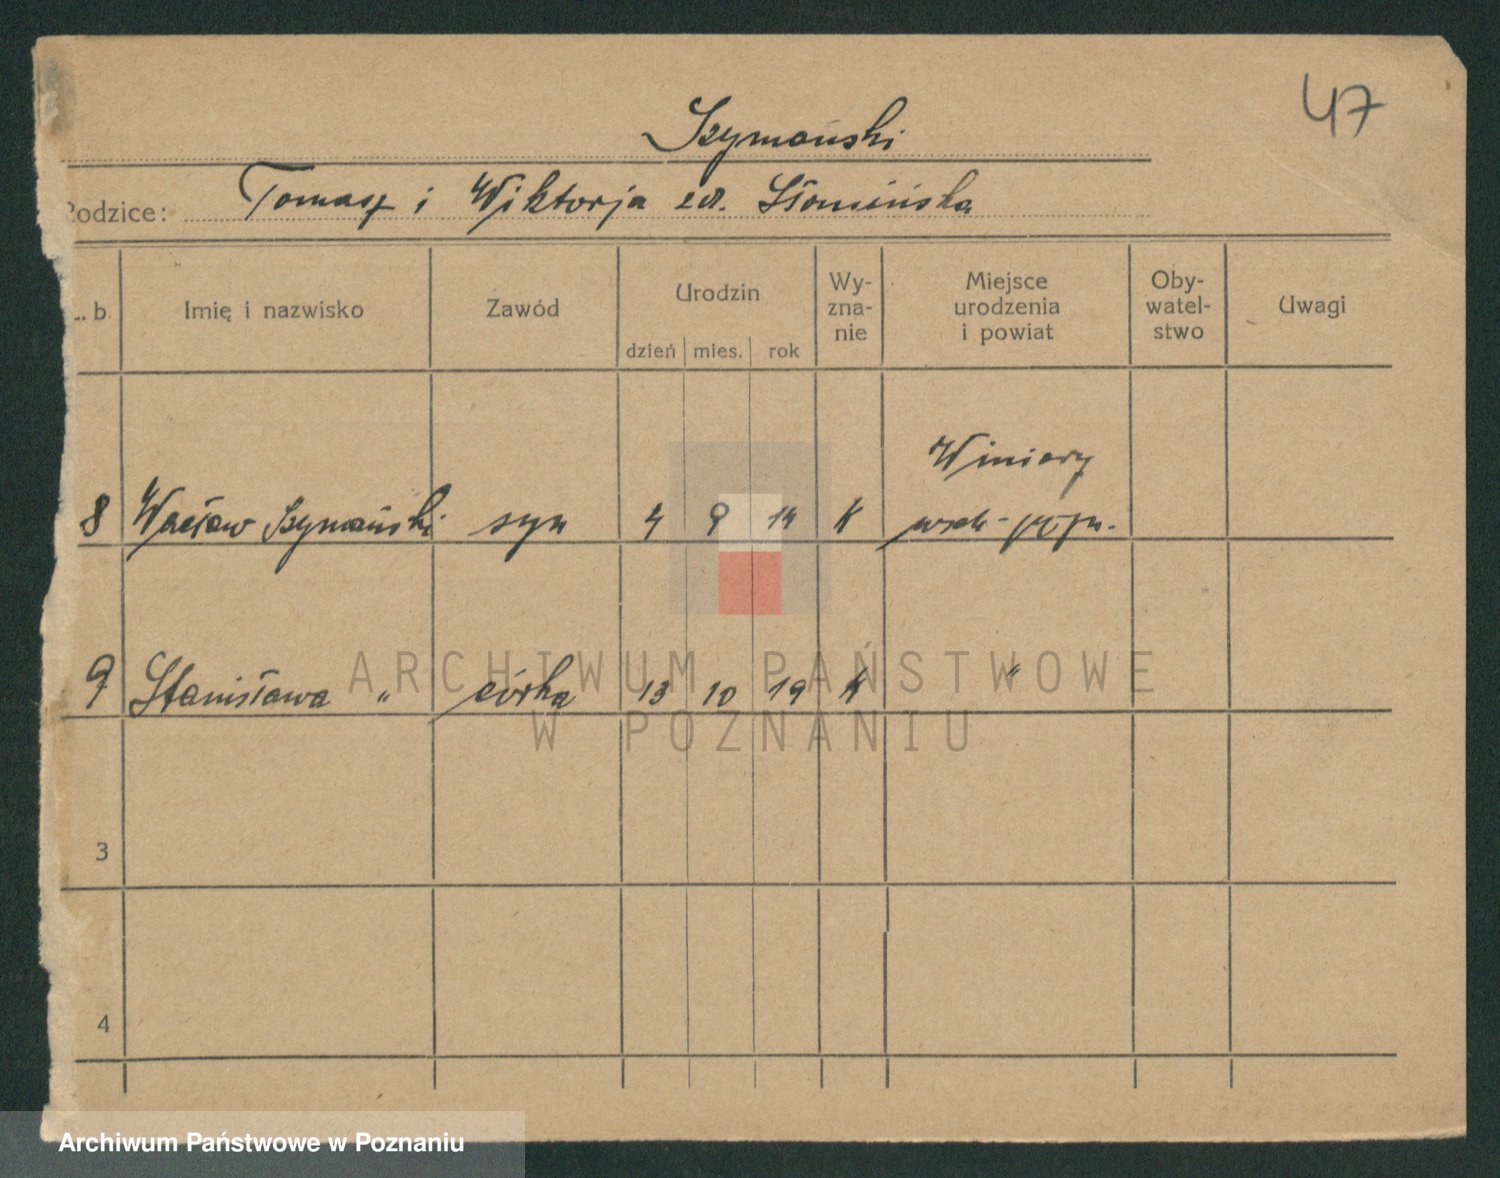 47
Szymański
Rodzice: Tomasz i Wiktorja zd. Słomińska
L. b. Imię i nazwisko Zawód Urodzin dzień mies. rok Wy-zna-nie Miejsce urodzenia i powiat Oby-watel-stwo Uwagi
Winiary
8 Wacław Szymański syn 4 9 14 K
9 Stanisława " córka 13 10 19 K "
ARCHIWUM PAŃSTWOWE
W POZNANIU
3
4
Archiwum Państwowe w Poznaniu